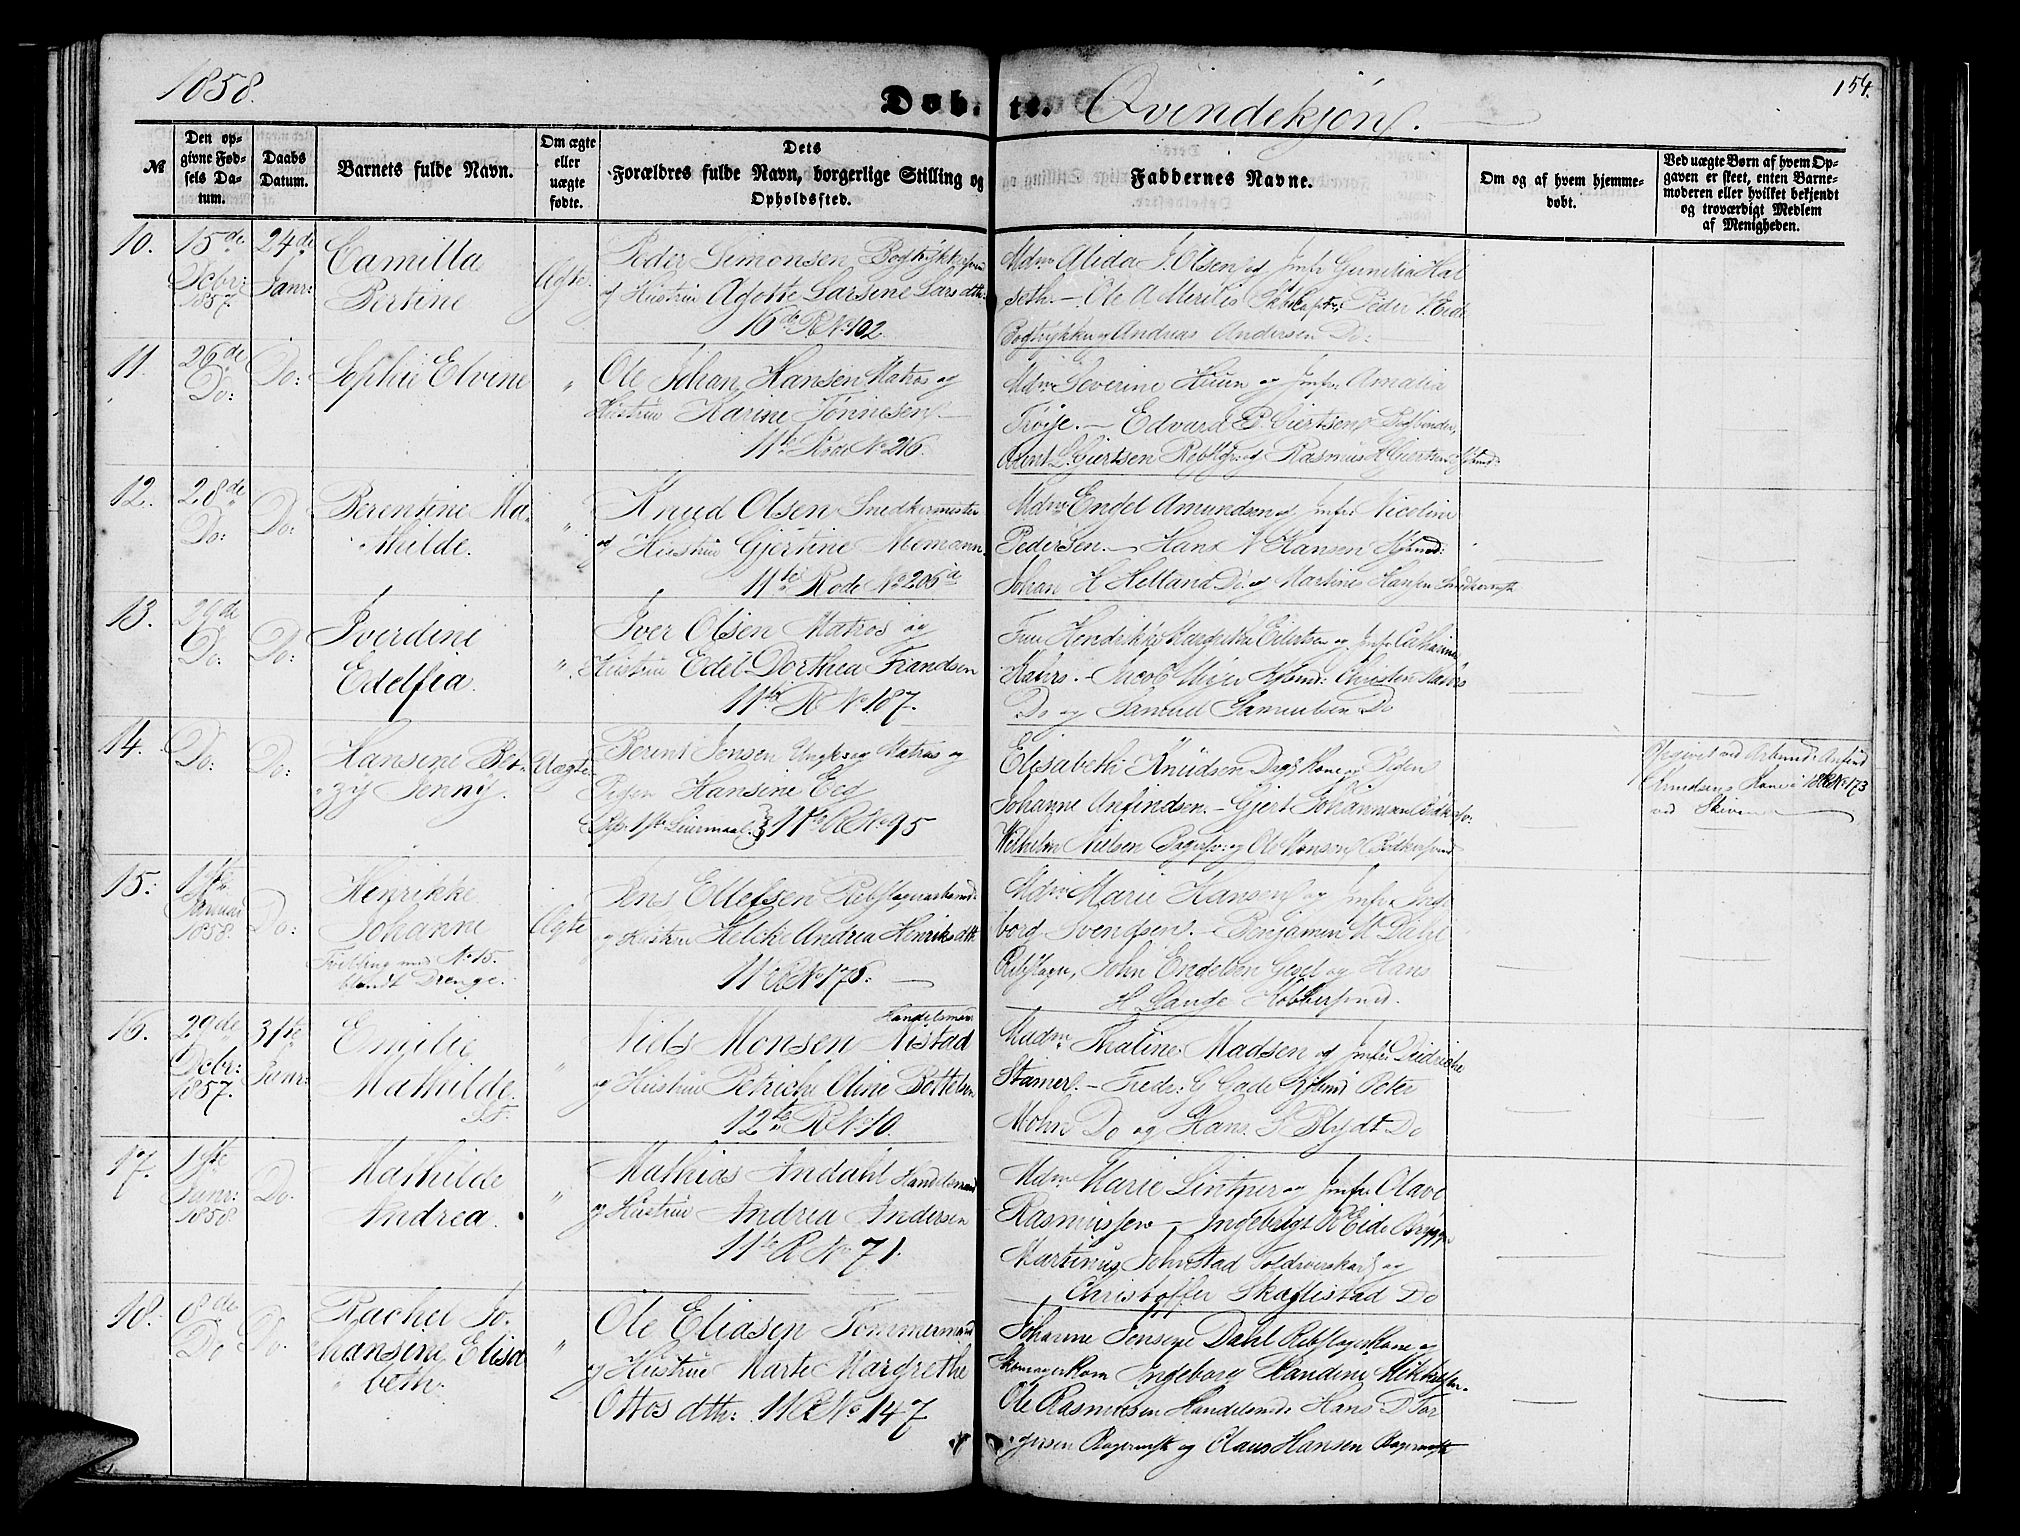 1858.
Døb-
te.
Qvindekjøn.
154.
№
Den op-
givne Fød-
sels Da-
tum.
Daabs
Datum.
Barnets fulde Navn.
Om ægte
eller
uægte
fødte.
Dets
Forældres fulde Navn, borgerlige Stilling og
Opholdssted.
Faddernes Navne.
Om og af hvem hjemme-
døbt.
Ved uægte Børn af hvem Op-
gaven er skeet, enten Barne-
moderen eller hvilket bekjendt
og troværdigt Medlem
af Menigheden.
10.
15de
Decbr:
1857.
24de
Janr:
Camilla
Bertine
Ægte.
Peder Simonsen Bogtrykkersvend
og Hustrue Agotte Larsine Larsdtr:
16de R No 102.
Mdm Alida J. Olsen og Jmfr Gunilia Hal
seth. - Ole A Meriles Peder V. Eide
Bogtrykker og Andreas Andersen Do:
11.
26de
Do:
Do:
Sophie Elvine
"
Ole Johan Hansen Matros og
Hustrue Karine Tønnesen.
11te Rode No 216.
Mdm Severine Huun og Jmfr Amalia
Trøije. - Edvard B. Giertsen Bogbinder,
Bernt L. Giertsen Rebslgr: og Rasmus H Giertsen Kjbmd:
12.
28de
Do:
Do:
Berentine Ma-
thilde.
"
Knud Olsen Snedkermester
og Hustrue Gjertine Niemann.
11te Rode No 206a
Mdm Engel Amundsen og Jmfr Nicoline
Pedersen. - Hans N Hansen Kjbmd:
Johan H Helland Do og Martines Hansen Snedkermst
13.
29de
Do:
Do:
Iverdine
Edelfia.
"
Iver Olsen Matros og
Hustrue Edel Dorthea Frandsen
11te R No 187.
Frue Hendrikke Margrethe Eilertsen og Jmfr Cathrine
Kahrs. - Jacob Meyer Kjbmd: Christen Kahrs
Do og Samuel Samuelsen Do
14.
Do:
Do:
Hansine Bir-
gy Jenny.
Uægte.
Berent Jensen Ungk: og Matros og
Pigen Hansine Eeg
Bgs 1ste Leiermaal. 11te R No 95
Elisabeth Knudsen Dags Kone og Pigen
Johanne Anfindsen. - Gjert Johannesen Bødkersv:
Wilhelm Nielsen Bagersv: og Ole Monsen Bødkersvend
Opgivet ved Arbmd: Anfind
Knudsens Kone i 18de R No 173
ved Skiven
15.
1ste
Januar
1858.
Do:
Henrikke
Johanne
Tvilling med No 15.
blandt Drenge.
Ægte
Jens Ellefsen Rebslagersvend
og Hustrue Helche Andrea Henriksdtr
11te R No 178.
Mdm Marie Hansen og Jmfr Inge
borg Svendsen. - Benjamin W Dahl
Rebslager, John Endelsen Giæel og Hans
H Lande Kobbersmed.
16.
29de
Decbr:
1857.
31te
Janr:
Emilie
Mathilde.
"
Handelsmand
Niels Monsen Nistad
og Hustrue Petriche Oline Bottelsen
12te R No 10.
Madm Thaline Madsen og Jmfr Didriche
Stamer. - Fredr: C Gade Kjbmd Peter
Mohn Do og Hans S Blydt Do
17.
1ste
Janr:
1858
Do.
Mathilde
Andrea.
"
Mathias Andahl Handelsmand
og Hustrue Andrea Andersen
11te R No 71.
Mdm Marie Lintner og Jmfr Olave
Rasmussen - Ingebrigt R Eide
Martinus Johnstad Toldroerskarl og
Christoffer Skaflestad Do
18.
8de
Do
Do.
Rachel Jo-
hansine Elisa
beth.
"
Ole Eliasen Tømmermand
og Hustrue Marte Margrethe
Ottosdtr: 11 R No 147
Johanne Jonsine Dahl RebslagerKone og
SkomagerKone Ingeborg Randine Mikkelsen.
Ole Rasmussen Handelsmd: Hans D Tor
gersen Bagermst og Claus Hansen Bagermst